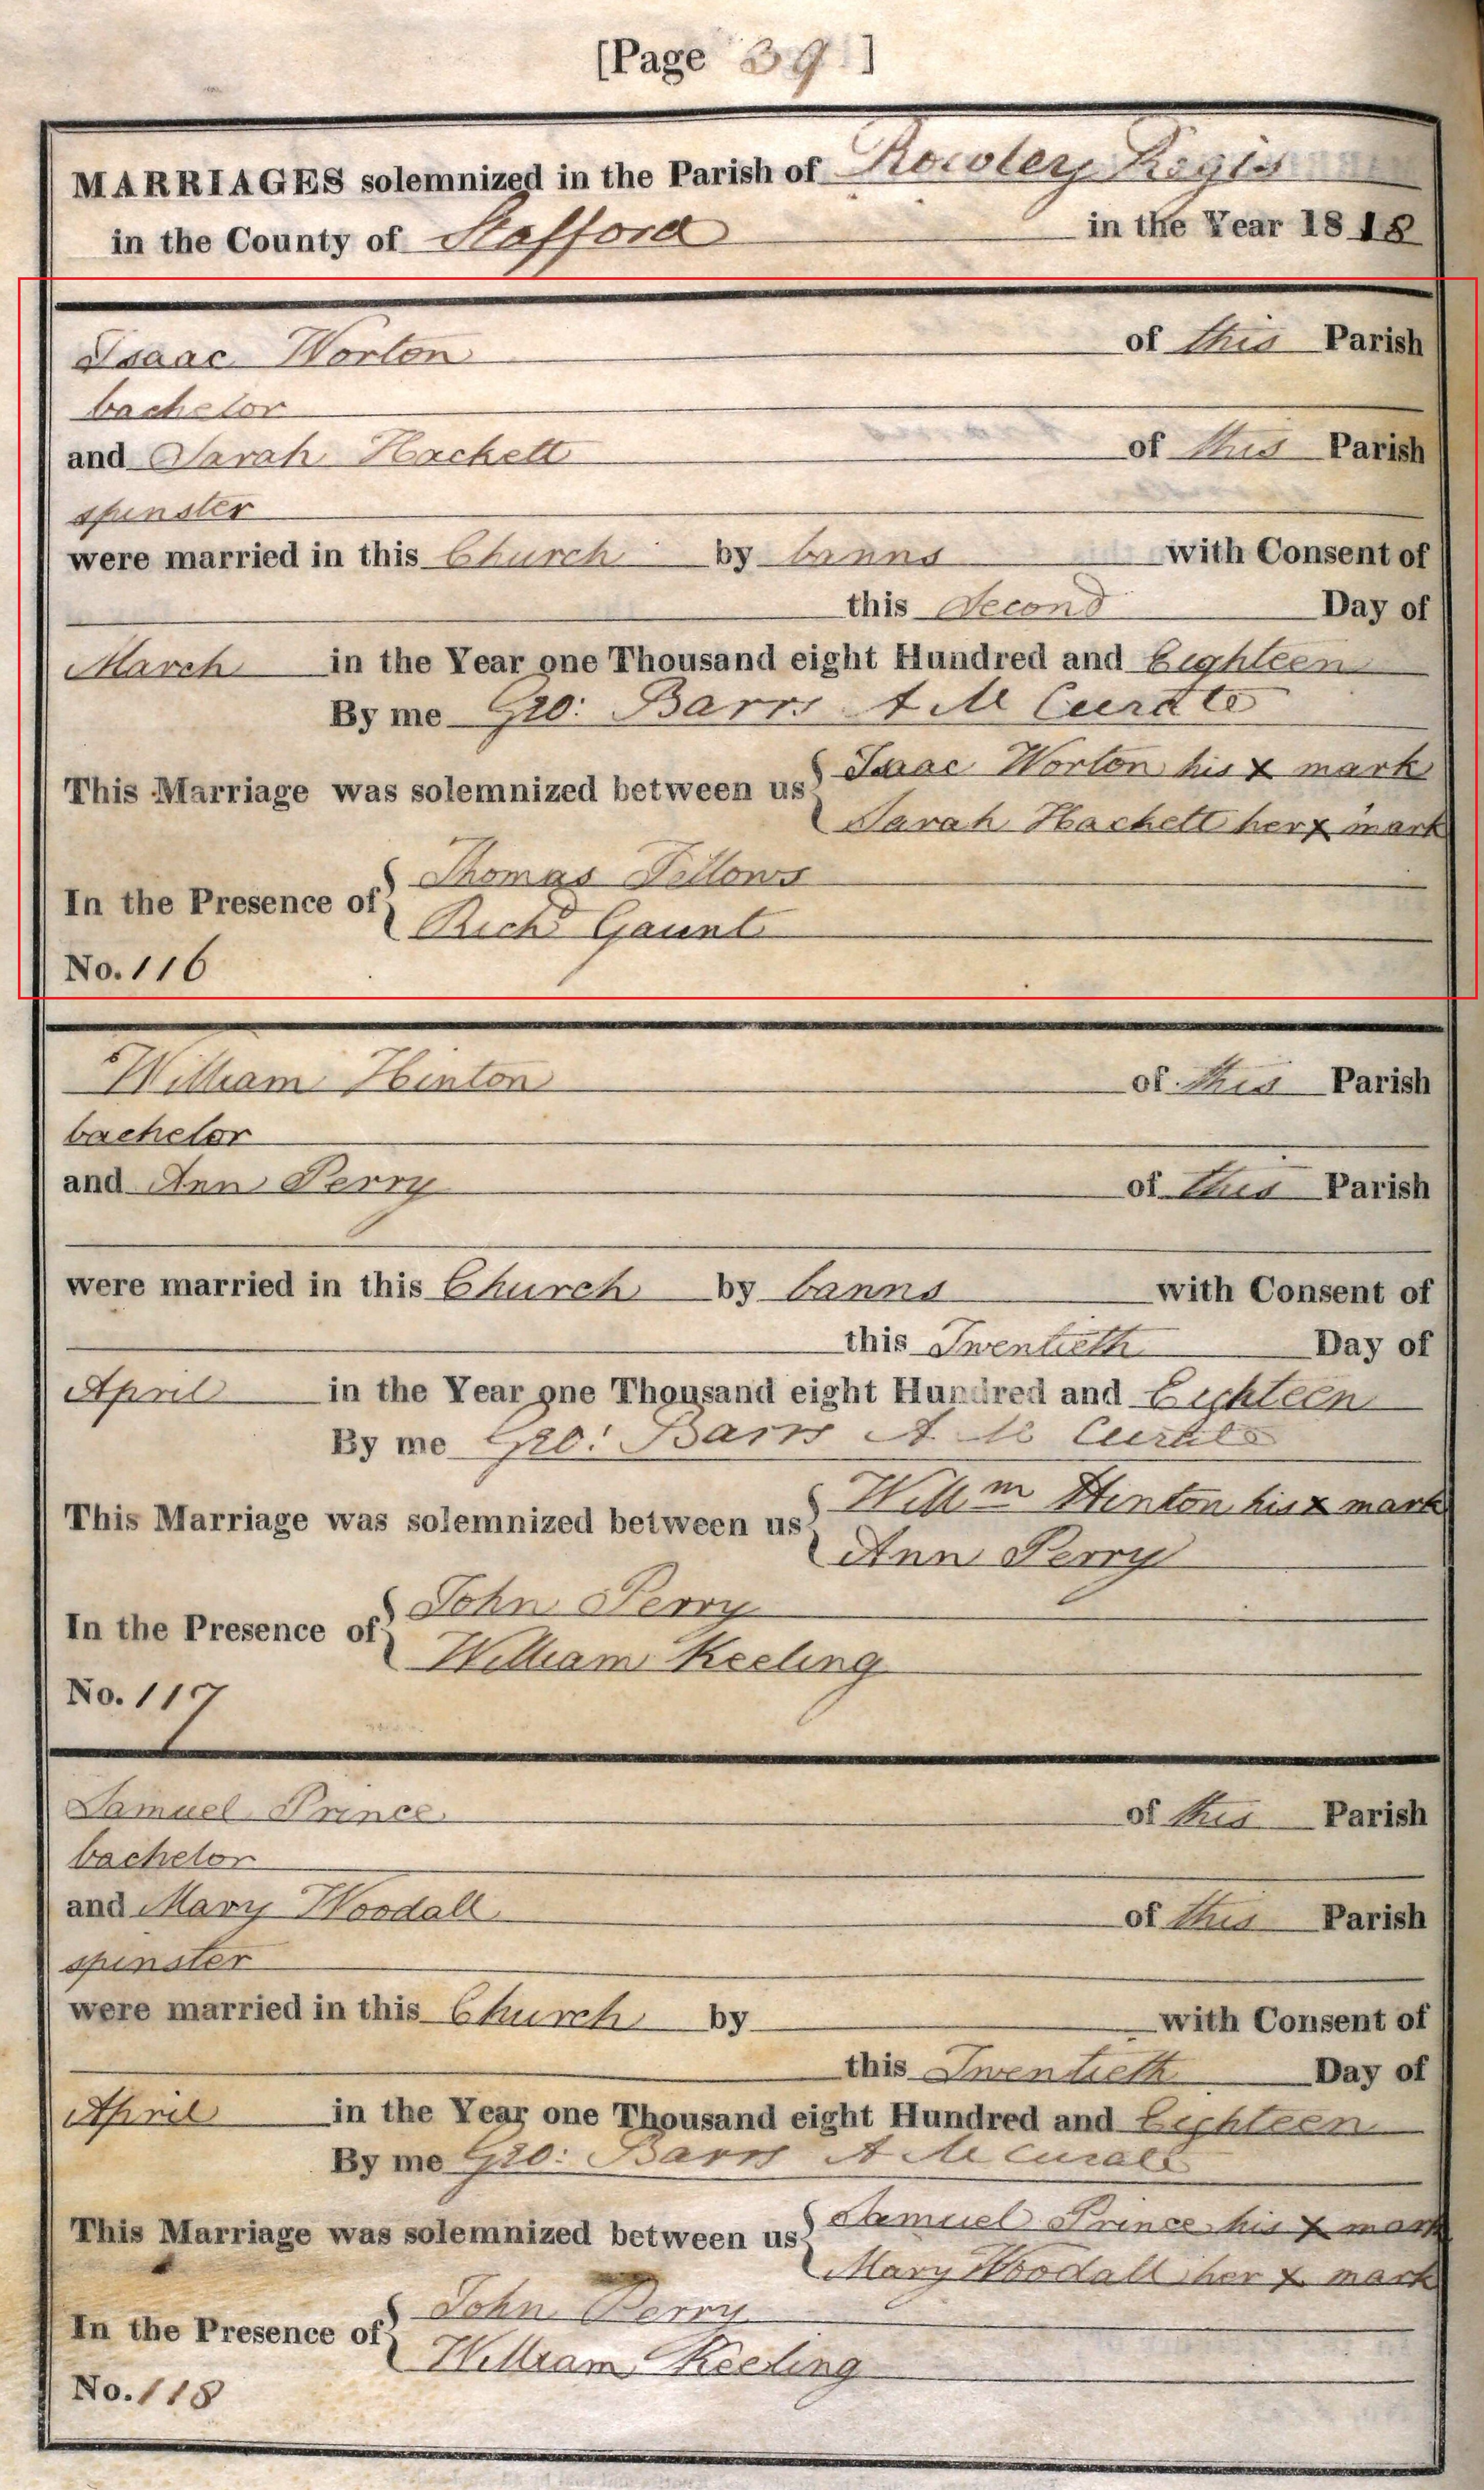 [Page 39]
MARRIAGES solemnized in the Parish of Rowley Regis
in the County of Stafford in the Year 1818
Isaac Worton of this Parish
bachelor
and Sarah Hackett of this Parish
spinster
were married in this Church by banns with Consent of
this Second Day of
March in the Year one Thousand eight Hundred and Eighteen
By me Geo: Barrs A M Curate
This Marriage was solemnized between us { Isaac Worton his x mark
Sarah Hackett her x mark
In the Presence of { Thomas Fellows
Richd Gaunt
No. 116
William Hinton of this Parish
bachelor
and Ann Perry of this Parish
were married in this Church by banns with Consent of
this Twentieth Day of
April in the Year one Thousand eight Hundred and Eighteen
By me Geo: Barrs A M Curate
This Marriage was solemnized between us { Willm Hinton his x mark
Ann Perry
In the Presence of { John Perry
William Keeling
No. 117
Samuel Prince of this Parish
bachelor
and Mary Woodall of this Parish
spinster
were married in this Church by with Consent of
this Twentieth Day of
April in the Year one Thousand eight Hundred and Eighteen
By me Geo: Barrs A M Curate
This Marriage was solemnized between us { Samuel Prince his x mark
Mary Woodall her x mark
In the Presence of { John Perry
William Keeling
No. 118